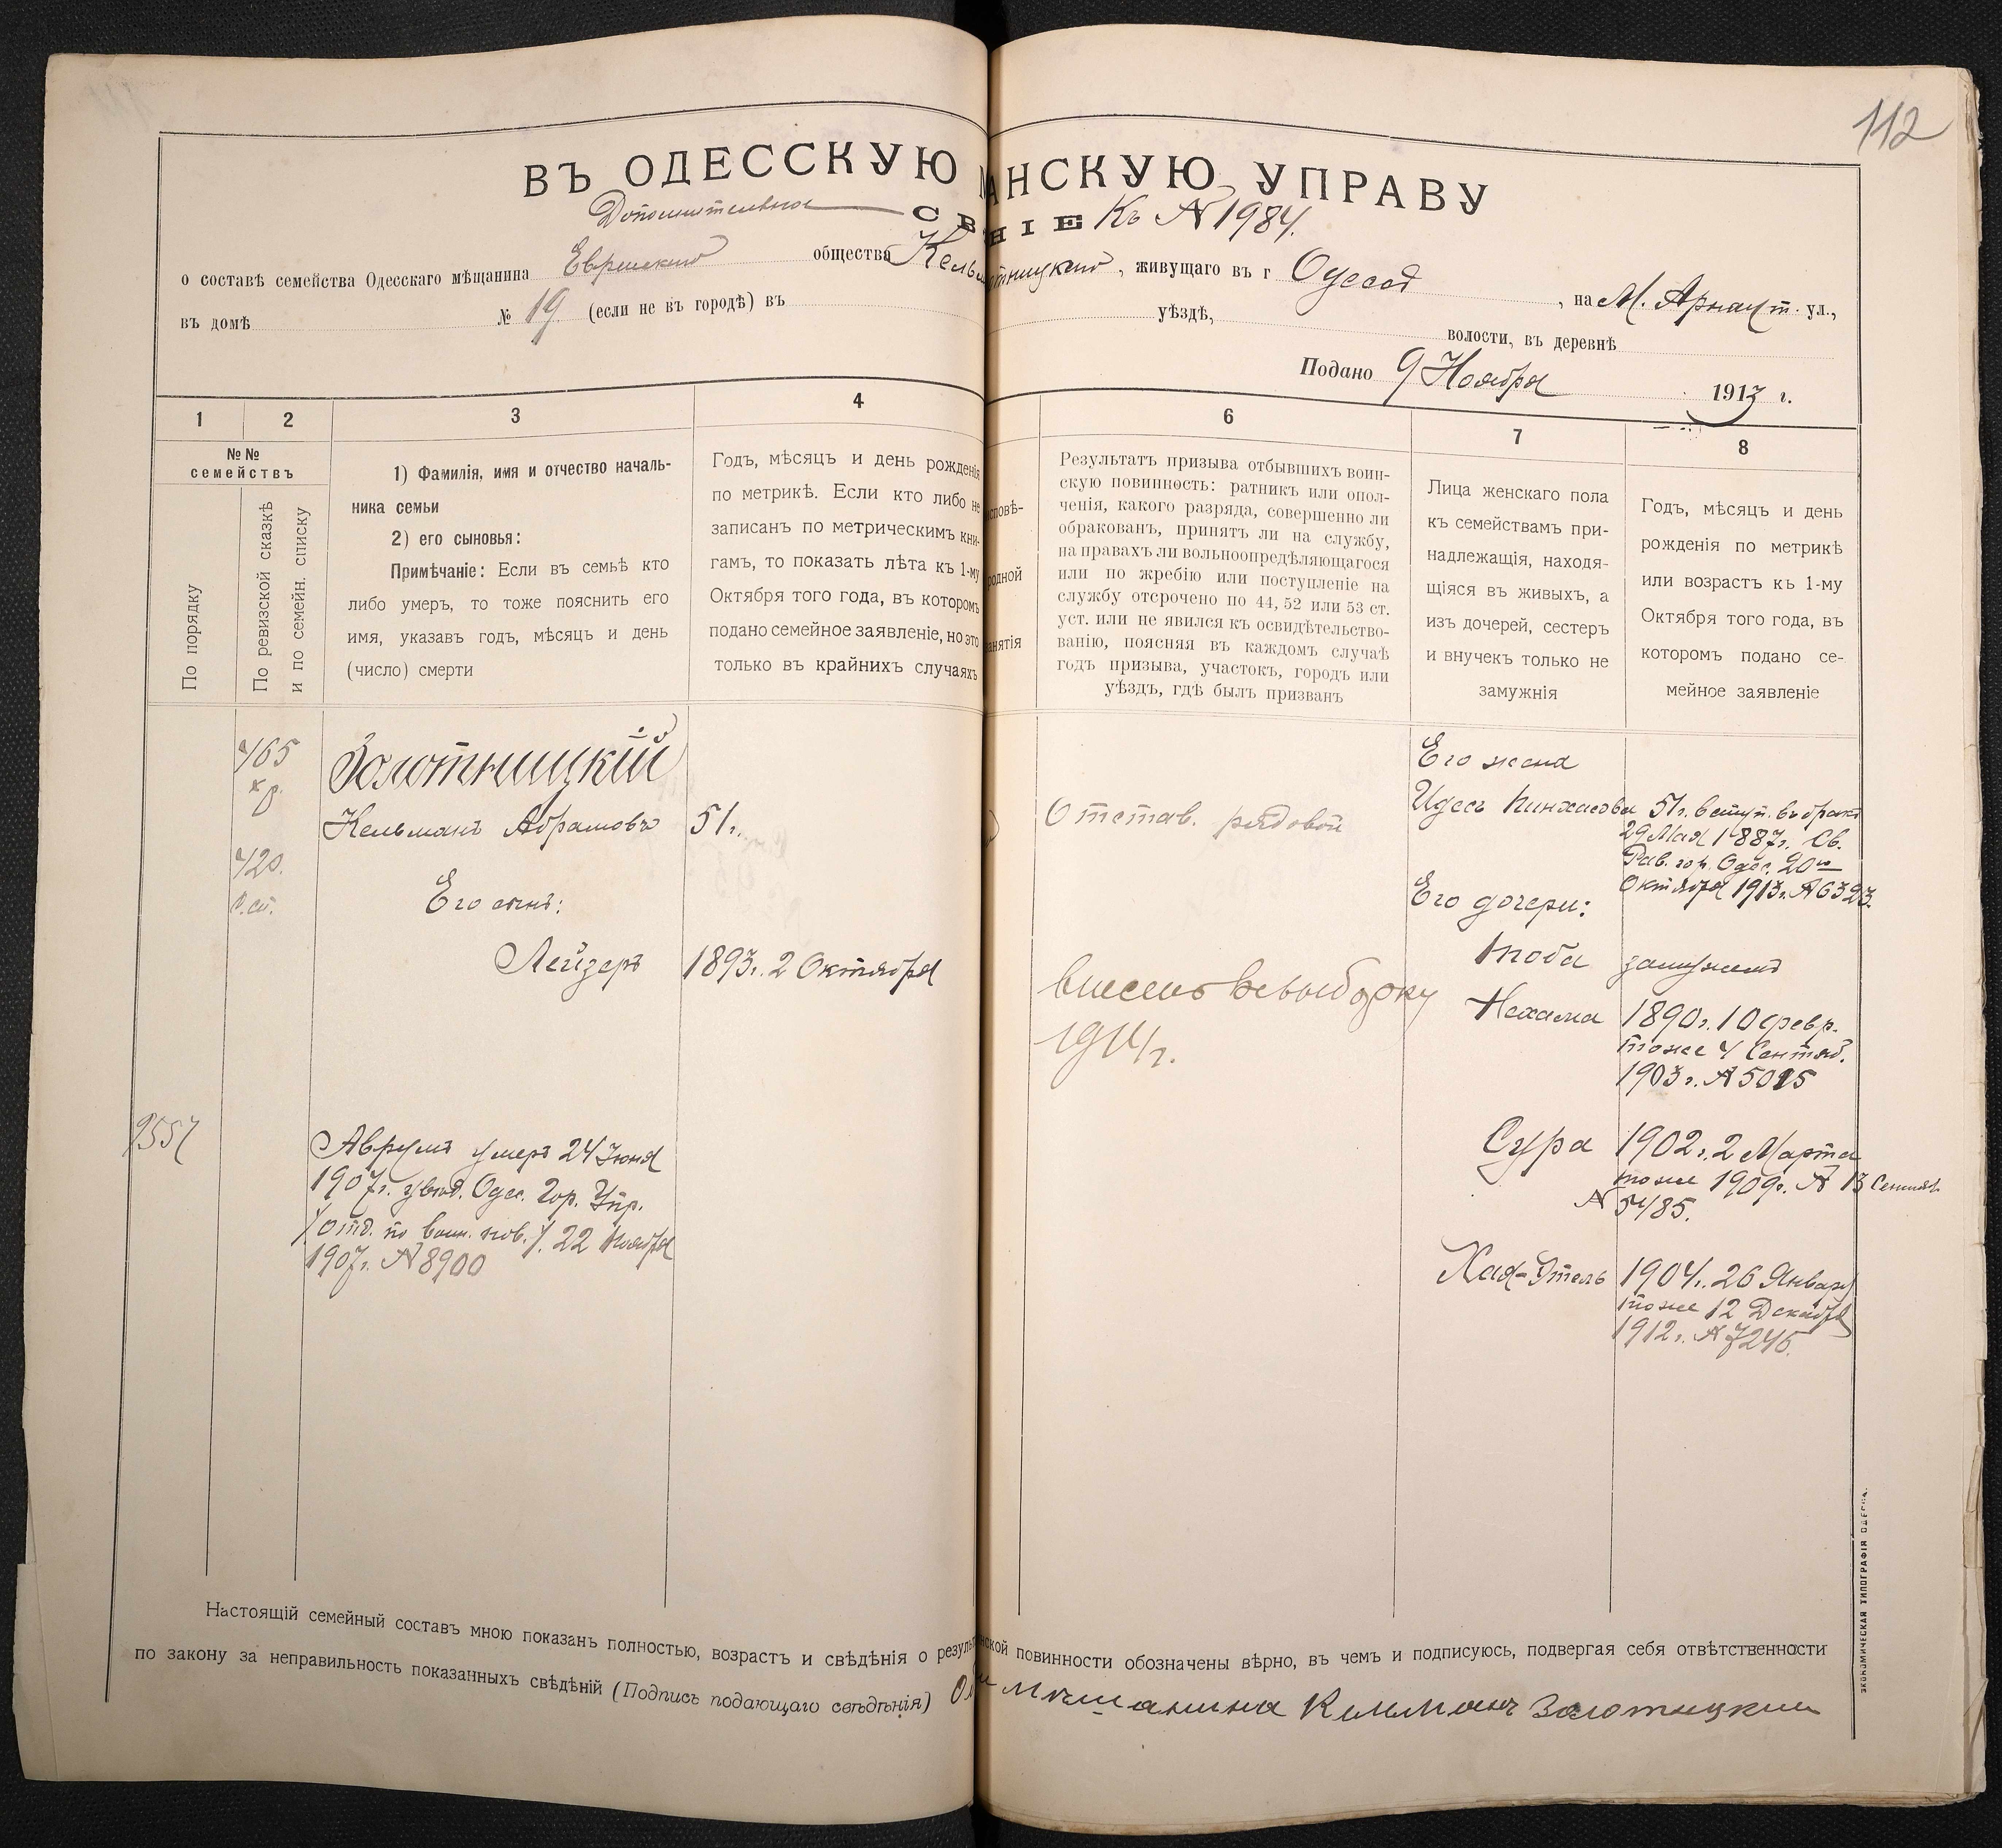 112
ВЪ ОДЕССКУЮ АНСКУЮ УПРАВУ
Дополнительное СВ НІЕ Къ № 1984.
о составѣ семейства Одесскаго мѣщанина Еврейскаго общества Кельм отницкаго, живущаго въ г Одессѣ, на М. Арнаут. ул.,
въ домѣ № 19 (если не въ городѣ) въ уѣздѣ, волости, въ деревнѣ
Подано 9 Ноября 1913 г.
1 2 3 4 6 7 8
№№ семействъ
По порядку
По ревизской сказкѣ
и по семейн. списку
1) Фамилія, имя и отчество началь-
ника семьи
2) его сыновья:
Примѣчаніе: Если въ семьѣ кто
либо умеръ, то тоже пояснить его
имя, указавъ годъ, мѣсяцъ и день
(число) смерти
Годъ, мѣсяцъ и день рожденія
по метрикѣ. Если кто либо не
записанъ по метрическимъ кни-
гамъ, то показать лѣта къ 1-му
Октября того года, въ которомъ
подано семейное заявленіе, но это
только въ крайнихъ случаяхъ
исповѣ-
родной
занятія
Результатъ призыва отбывшихъ воин-
скую повинность: ратникъ или опол-
ченія, какого разряда, совершенно ли
обракованъ, принятъ ли на службу,
на правахъ ли вольноопредѣляющагося
или по жребію или поступленіе на
службу отсрочено по 44, 52 или 53 ст.
уст. или не явился къ освидѣтельство-
ванію, поясняя въ каждомъ случаѣ
годъ призыва, участокъ, городъ или
уѣздъ, гдѣ былъ призванъ
Лица женскаго пола
къ семействамъ при-
надлежащія, находя-
щіяся въ живыхъ, а
изъ дочерей, сестеръ
и внучекъ только не
замужнія
Годъ, мѣсяцъ и день
рожденія по метрикѣ
или возрастъ къ 1-му
Октября того года, въ
которомъ подано се-
мейное заявленіе
465
420.
Золотницкій
Кельманъ Абрамовъ 51г.
Его сынъ:
Лейзеръ 1893г. 2 Октября
9557
Аврумъ умеръ 24 Іюня
1907г. увѣд. Одес. Гор. Упр.
/отд. по воин. пов./. 22 Ноября
1907г. № 8900
Отстав. рядовой
внесенъ въ выборку
1914г.
Его жена
Идесъ Пинхасова 51г. вступ. въ бракъ
29 Мая 1887г. Св.
Рав. гор. Одес. 20го
Октября 1913г. № 6323.
Его дочери:
Тоба замужемъ
Нехама 1890г. 10 февр.
тоже 4 Сентяб.
1903г. № 5015
Сура 1902г. 2 Марта
тоже 1909г. № 13 Сентяб.
№ 5485.
Хая-Этель 1904г. 26 Января
тоже 12 Декабря
1912г. № 7246.
Настоящій семейный составъ мною показанъ полностью, возрастъ и свѣдѣнія о резуль нской повинности обозначены вѣрно, въ чемъ и подписуюсь, подвергая себя отвѣтственности
по закону за неправильность показанныхъ свѣдѣній (Подпись подающаго свѣдѣнія) мѣщанина Келманъ Золотницкий
ЭКОНОМИЧЕСКАЯ ТИПОГРАФІЯ ОДЕССА.